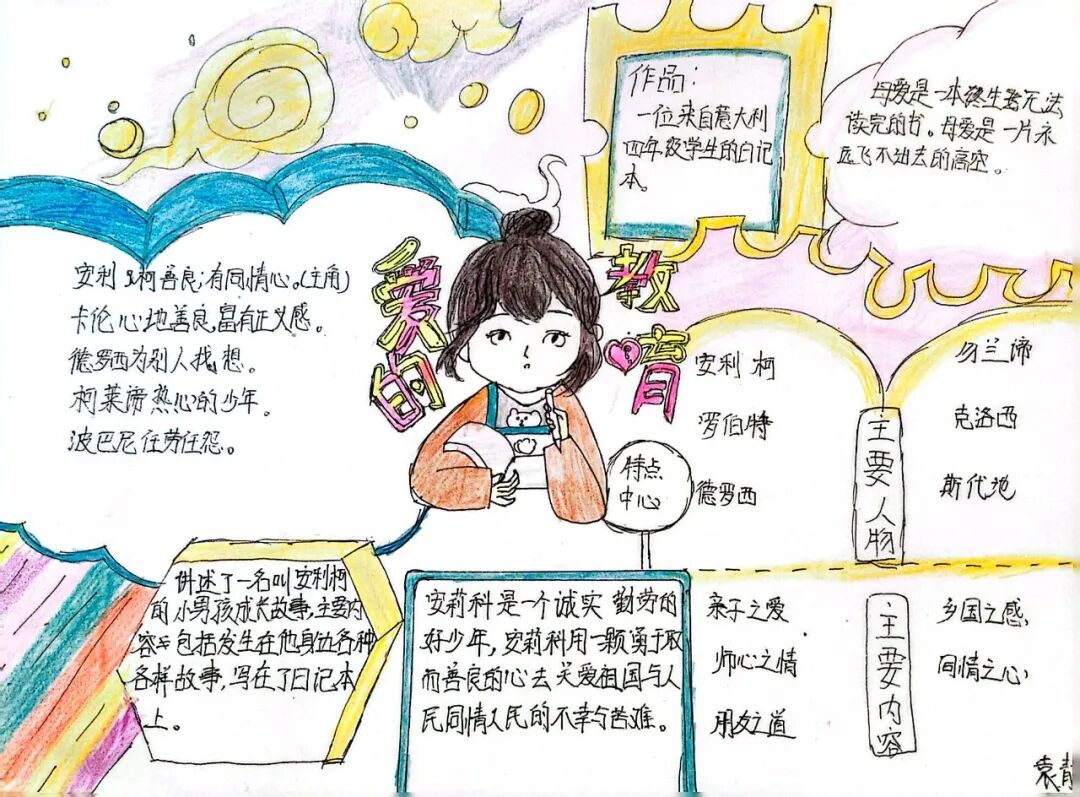 作品：
一位来自意大利
四年级学生的日记
本。
母爱是一本终生无法
读完的书。母爱是一片永
远飞不出去的高空。
爱的
教育
安利柯善良；有同情心。（主角）
卡伦心地善良，富有正义感。
德罗西为别人找想。
柯莱谛热心的少年。
波巴尼任劳任怨。
特点
中心
安利柯
罗伯特
德罗西
主要人物
克洛西
斯代地
讲述了一名叫安利柯
的小男孩成长故事，主要内
容包括发生在他身边各种
各样故事，写在了日记本
上。
安莉科是一个诚实 勤劳的
好少年，安莉科用一颗勇于取
而善良的心去关爱祖国与人
民同情人民的不幸与苦难。
亲子之爱
师心之情
朋友之道
主要内容
乡国之感，
同情之心，
袁青